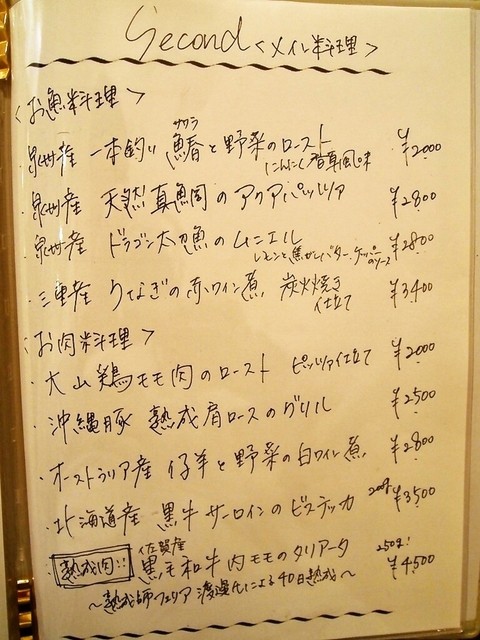 Second <メイン料理>
<お魚料理>
・泉州産 一本釣り 鰆と野菜のロースト ¥2000
サワラ
にんにく香草風味
・泉州産 天然真鯛のアクアパッツァ ¥2800
・泉州産 ドラゴン太刀魚のムニエル ¥2800
レモンと焦がしバター、ケッパーのソース
・三重産 うなぎの赤ワイン煮 炭火焼き仕立て ¥3400
<お肉料理>
・大山鶏モモ肉のロースト ピッツァイ仕立て ¥2000
・沖縄豚 熟成肩ロースのグリル ¥2500
・オーストラリア産 仔羊と野菜の白ワイン煮 ¥2800
・北海道産 黒牛サーロインのビステッカ 200g ¥3500
熟成肉!! 佐賀産 黒毛和牛内モモのタリアータ 250g! ¥4,500
〜熟成師フェリア 渡邊氏による40日熟成〜